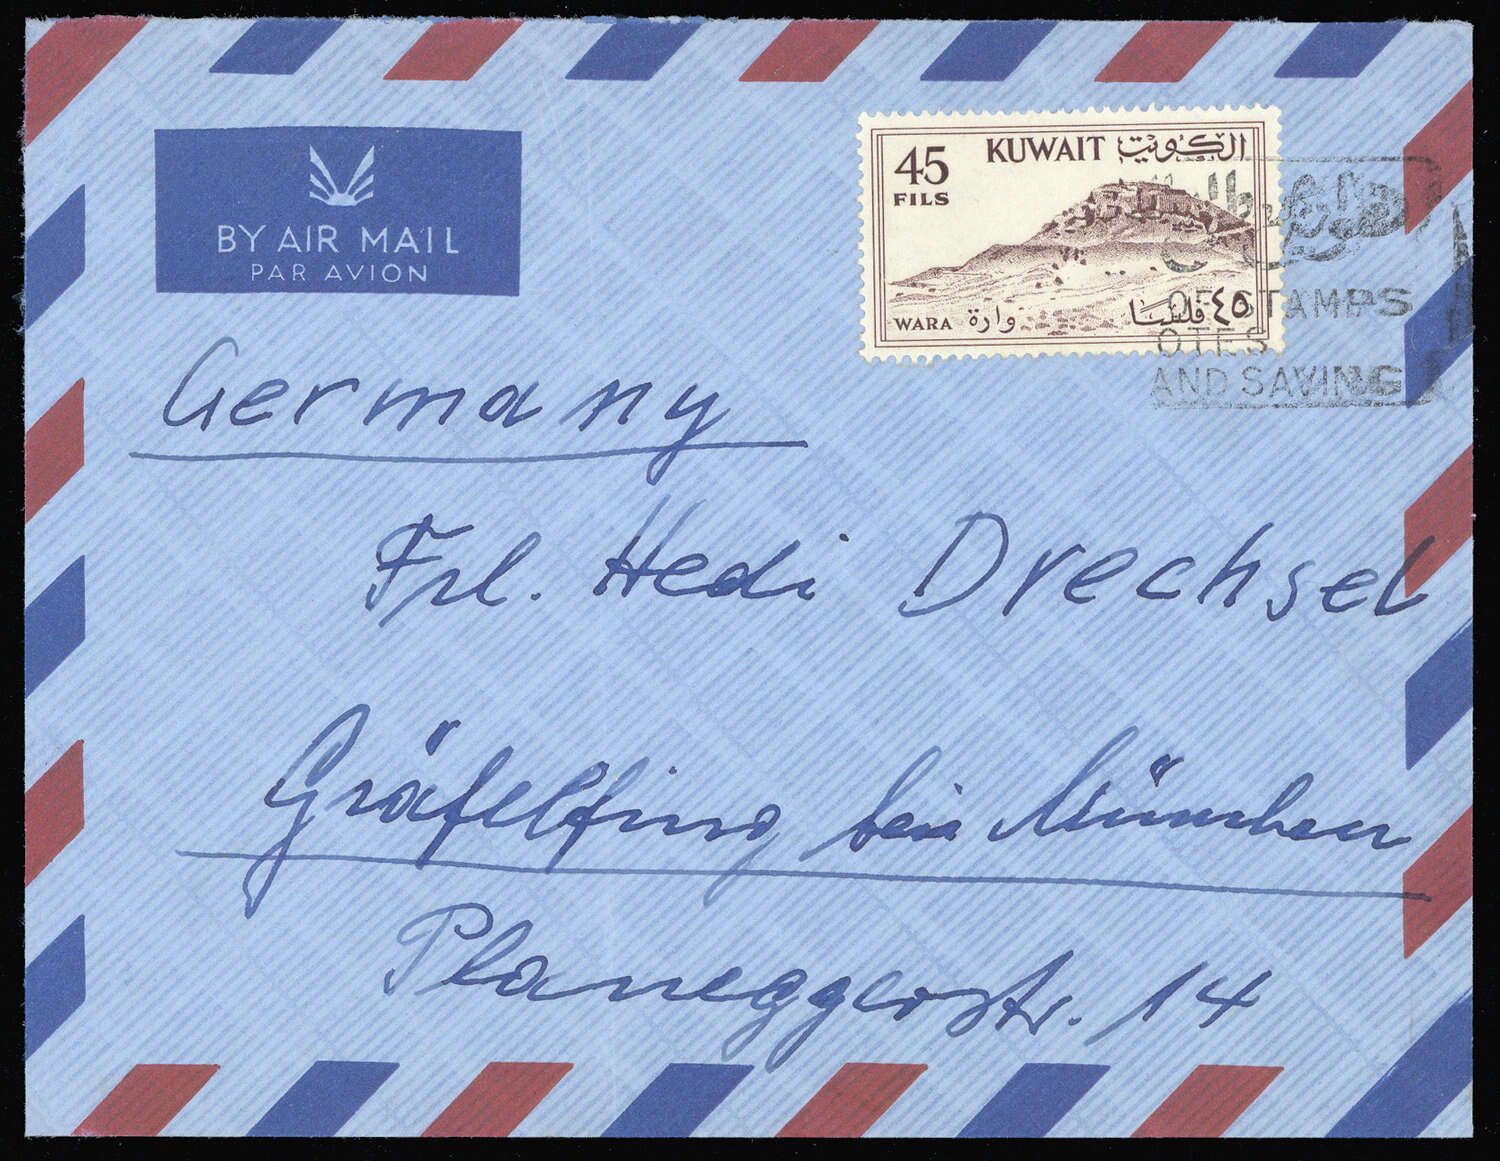 BY AIR MAIL
PAR AVION
45 KUWAIT الكويت
FILS
WARA وارة ٤٥ فلسا
OF STAMPS
OTES
AND SAVING
Germany
Frl. Hedi Drechsel
Gräfelfing bei München
Planeggerstr. 14